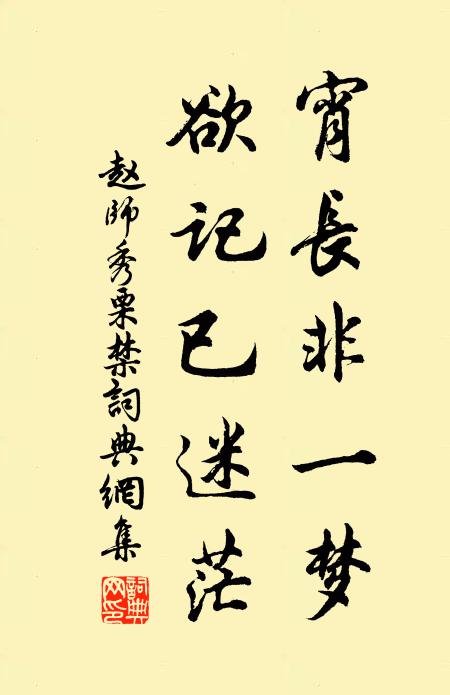 宵長非一梦
欲记已迷茫
赵師秀栗禁詞典網集
詞典網印